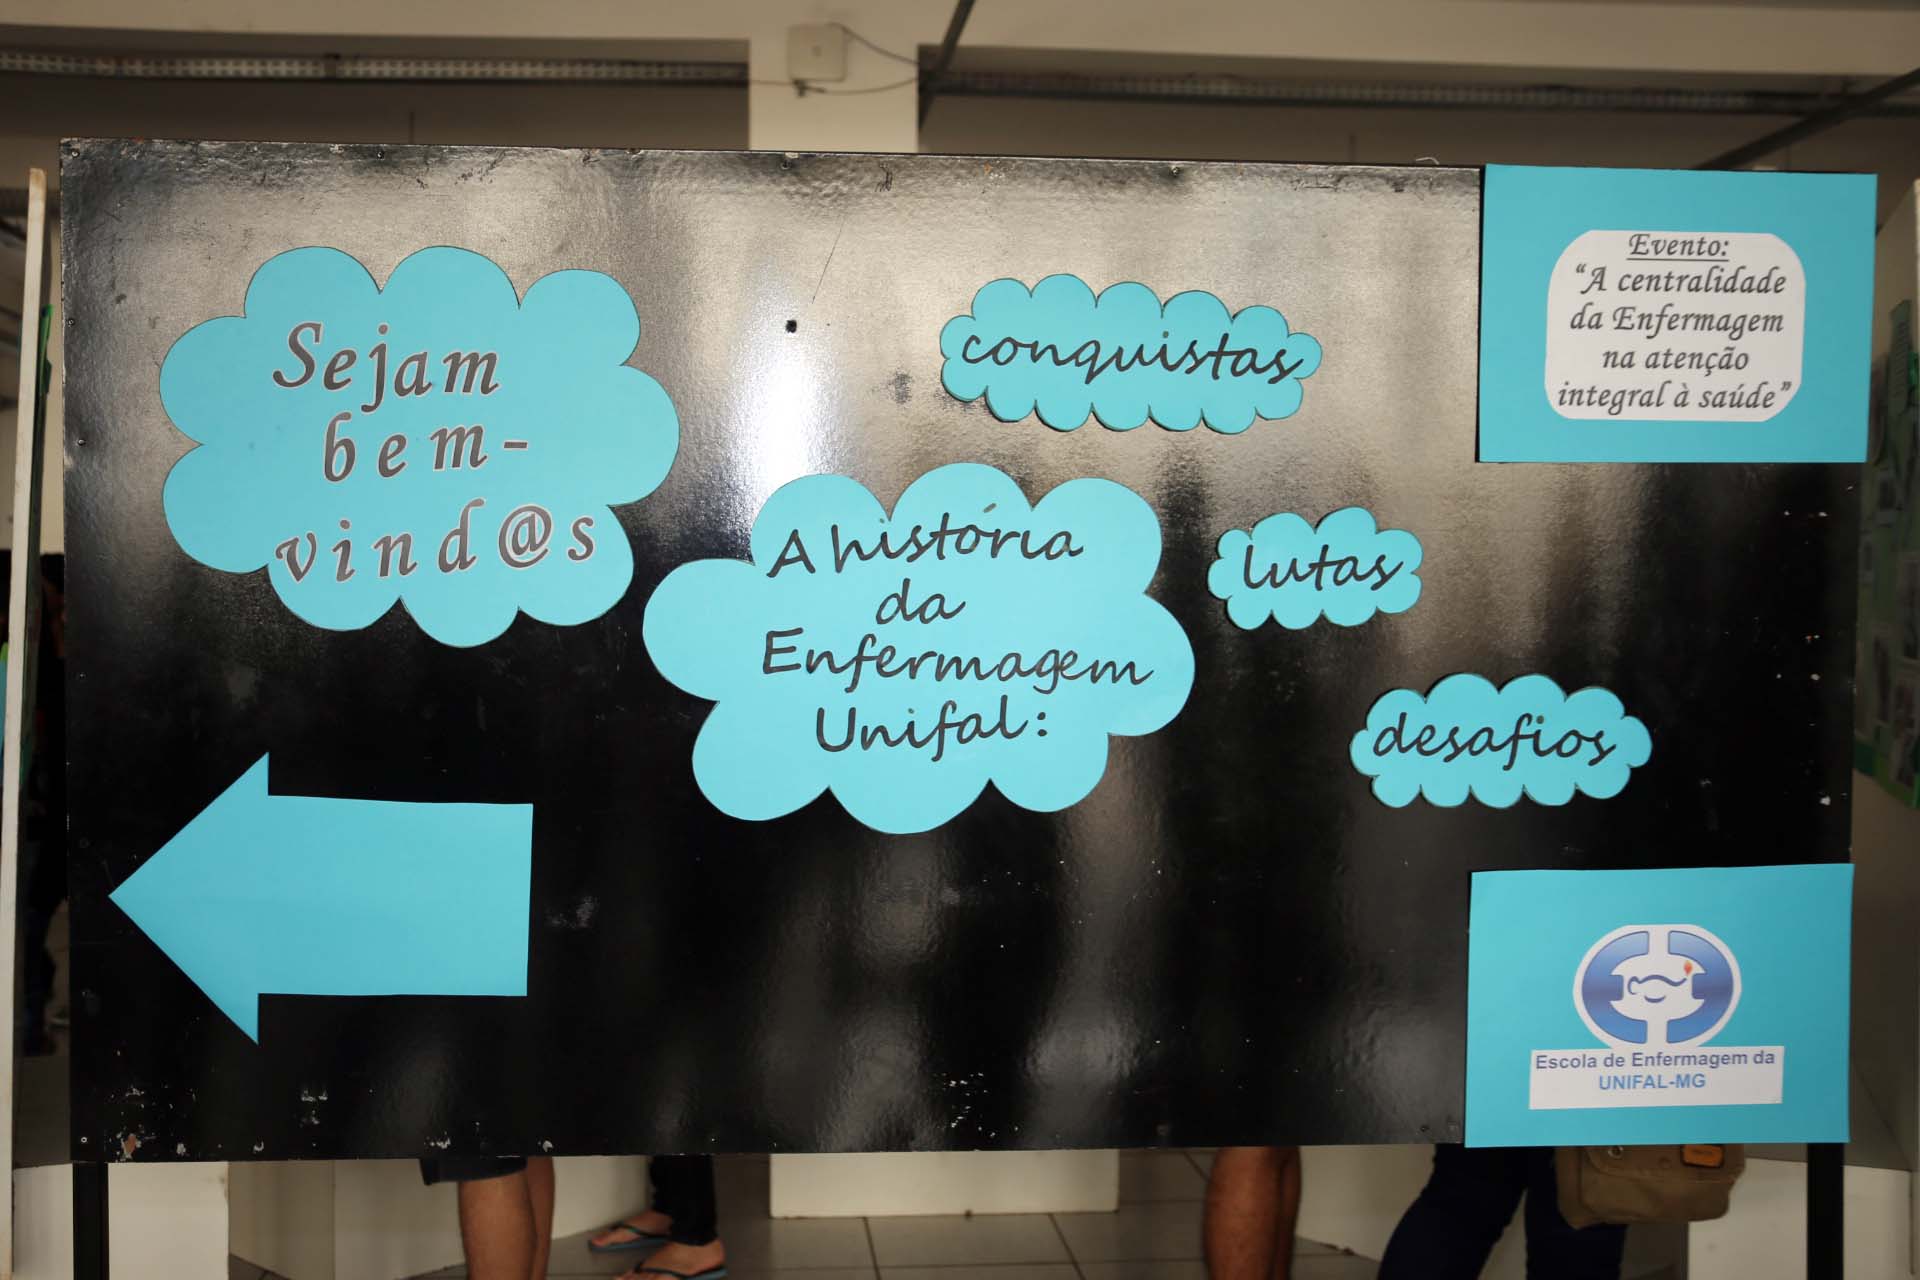 Sejam
bem-
vind@s
A história
da
Enfermagem
Unifal:
conquistas
lutas
desafios
Evento:
“A centralidade
da Enfermagem
na atenção
integral à saúde”
Escola de Enfermagem da
UNIFAL-MG